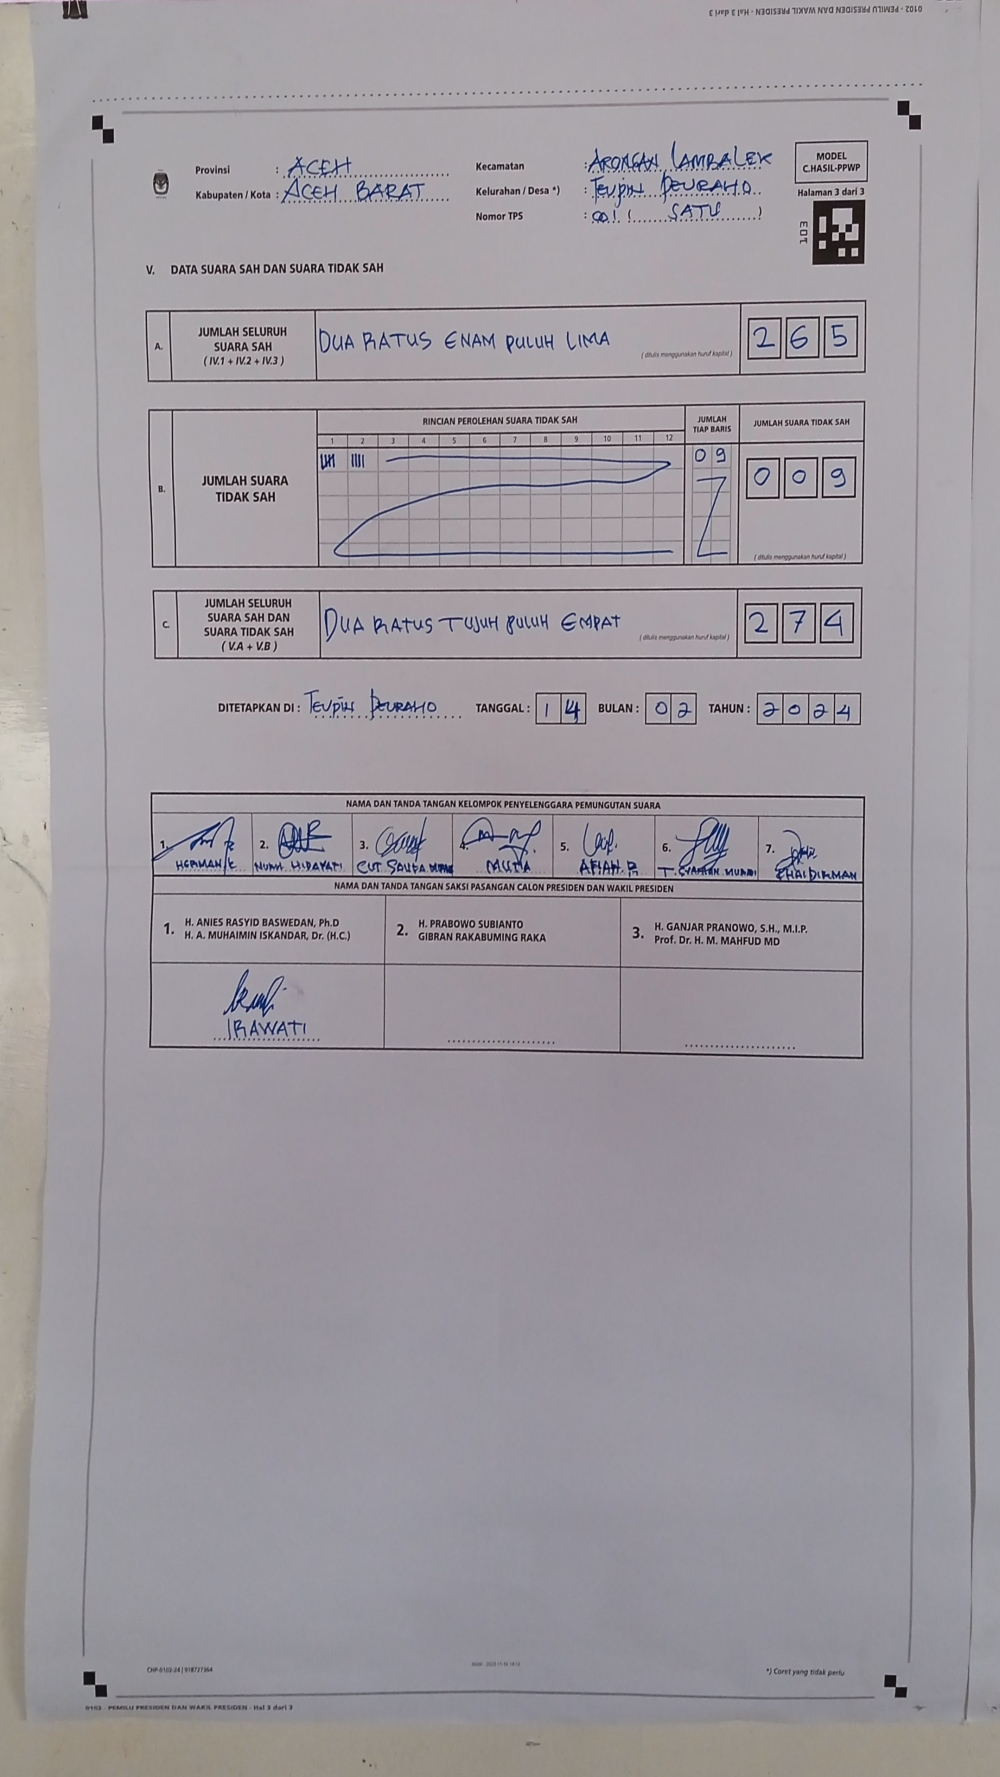 0102 - PEMILU PRESIDEN DAN WAKIL PRESIDEN - Hal 3 dari 3
Provinsi : ACEH
Kabupaten / Kota : ACEH BARAT
Kecamatan : ARONGAN LAMBALEK
Kelurahan / Desa *) : TEUPIN PEURAHO
Nomor TPS : 001 ( SATU )
MODEL
C.HASIL-PPWP
Halaman 3 dari 3
V. DATA SUARA SAH DAN SUARA TIDAK SAH
A.
JUMLAH SELURUH
SUARA SAH
( IV.1 + IV.2 + IV.3 )
DUA RATUS ENAM PULUH LIMA
( ditulis menggunakan huruf kapital )
2 6 5
B.
JUMLAH SUARA
TIDAK SAH
RINCIAN PEROLEHAN SUARA TIDAK SAH
1 2 3 4 5 6 7 8 9 10 11 12
JUMLAH
TIAP BARIS
09
JUMLAH SUARA TIDAK SAH
0 0 9
( ditulis menggunakan huruf kapital )
C.
JUMLAH SELURUH
SUARA SAH DAN
SUARA TIDAK SAH
( V.A + V.B )
DUA RATUS TUJUH PULUH EMPAT
( ditulis menggunakan huruf kapital )
2 7 4
DITETAPKAN DI : TEUPIN PEURAHO TANGGAL : 14 BULAN : 02 TAHUN : 2024
NAMA DAN TANDA TANGAN KELOMPOK PENYELENGGARA PEMUNGUTAN SUARA
1. 2. 3. 4. 5. 6. 7.
NAMA DAN TANDA TANGAN SAKSI PASANGAN CALON PRESIDEN DAN WAKIL PRESIDEN
1. H. ANIES RASYID BASWEDAN, Ph.D
H. A. MUHAIMIN ISKANDAR, Dr. (H.C.)
2. H. PRABOWO SUBIANTO
GIBRAN RAKABUMING RAKA
3. H. GANJAR PRANOWO, S.H., M.I.P.
Prof. Dr. H. M. MAHFUD MD
IRAWATI
*) Coret yang tidak perlu
0102 - PEMILU PRESIDEN DAN WAKIL PRESIDEN - Hal 3 dari 3